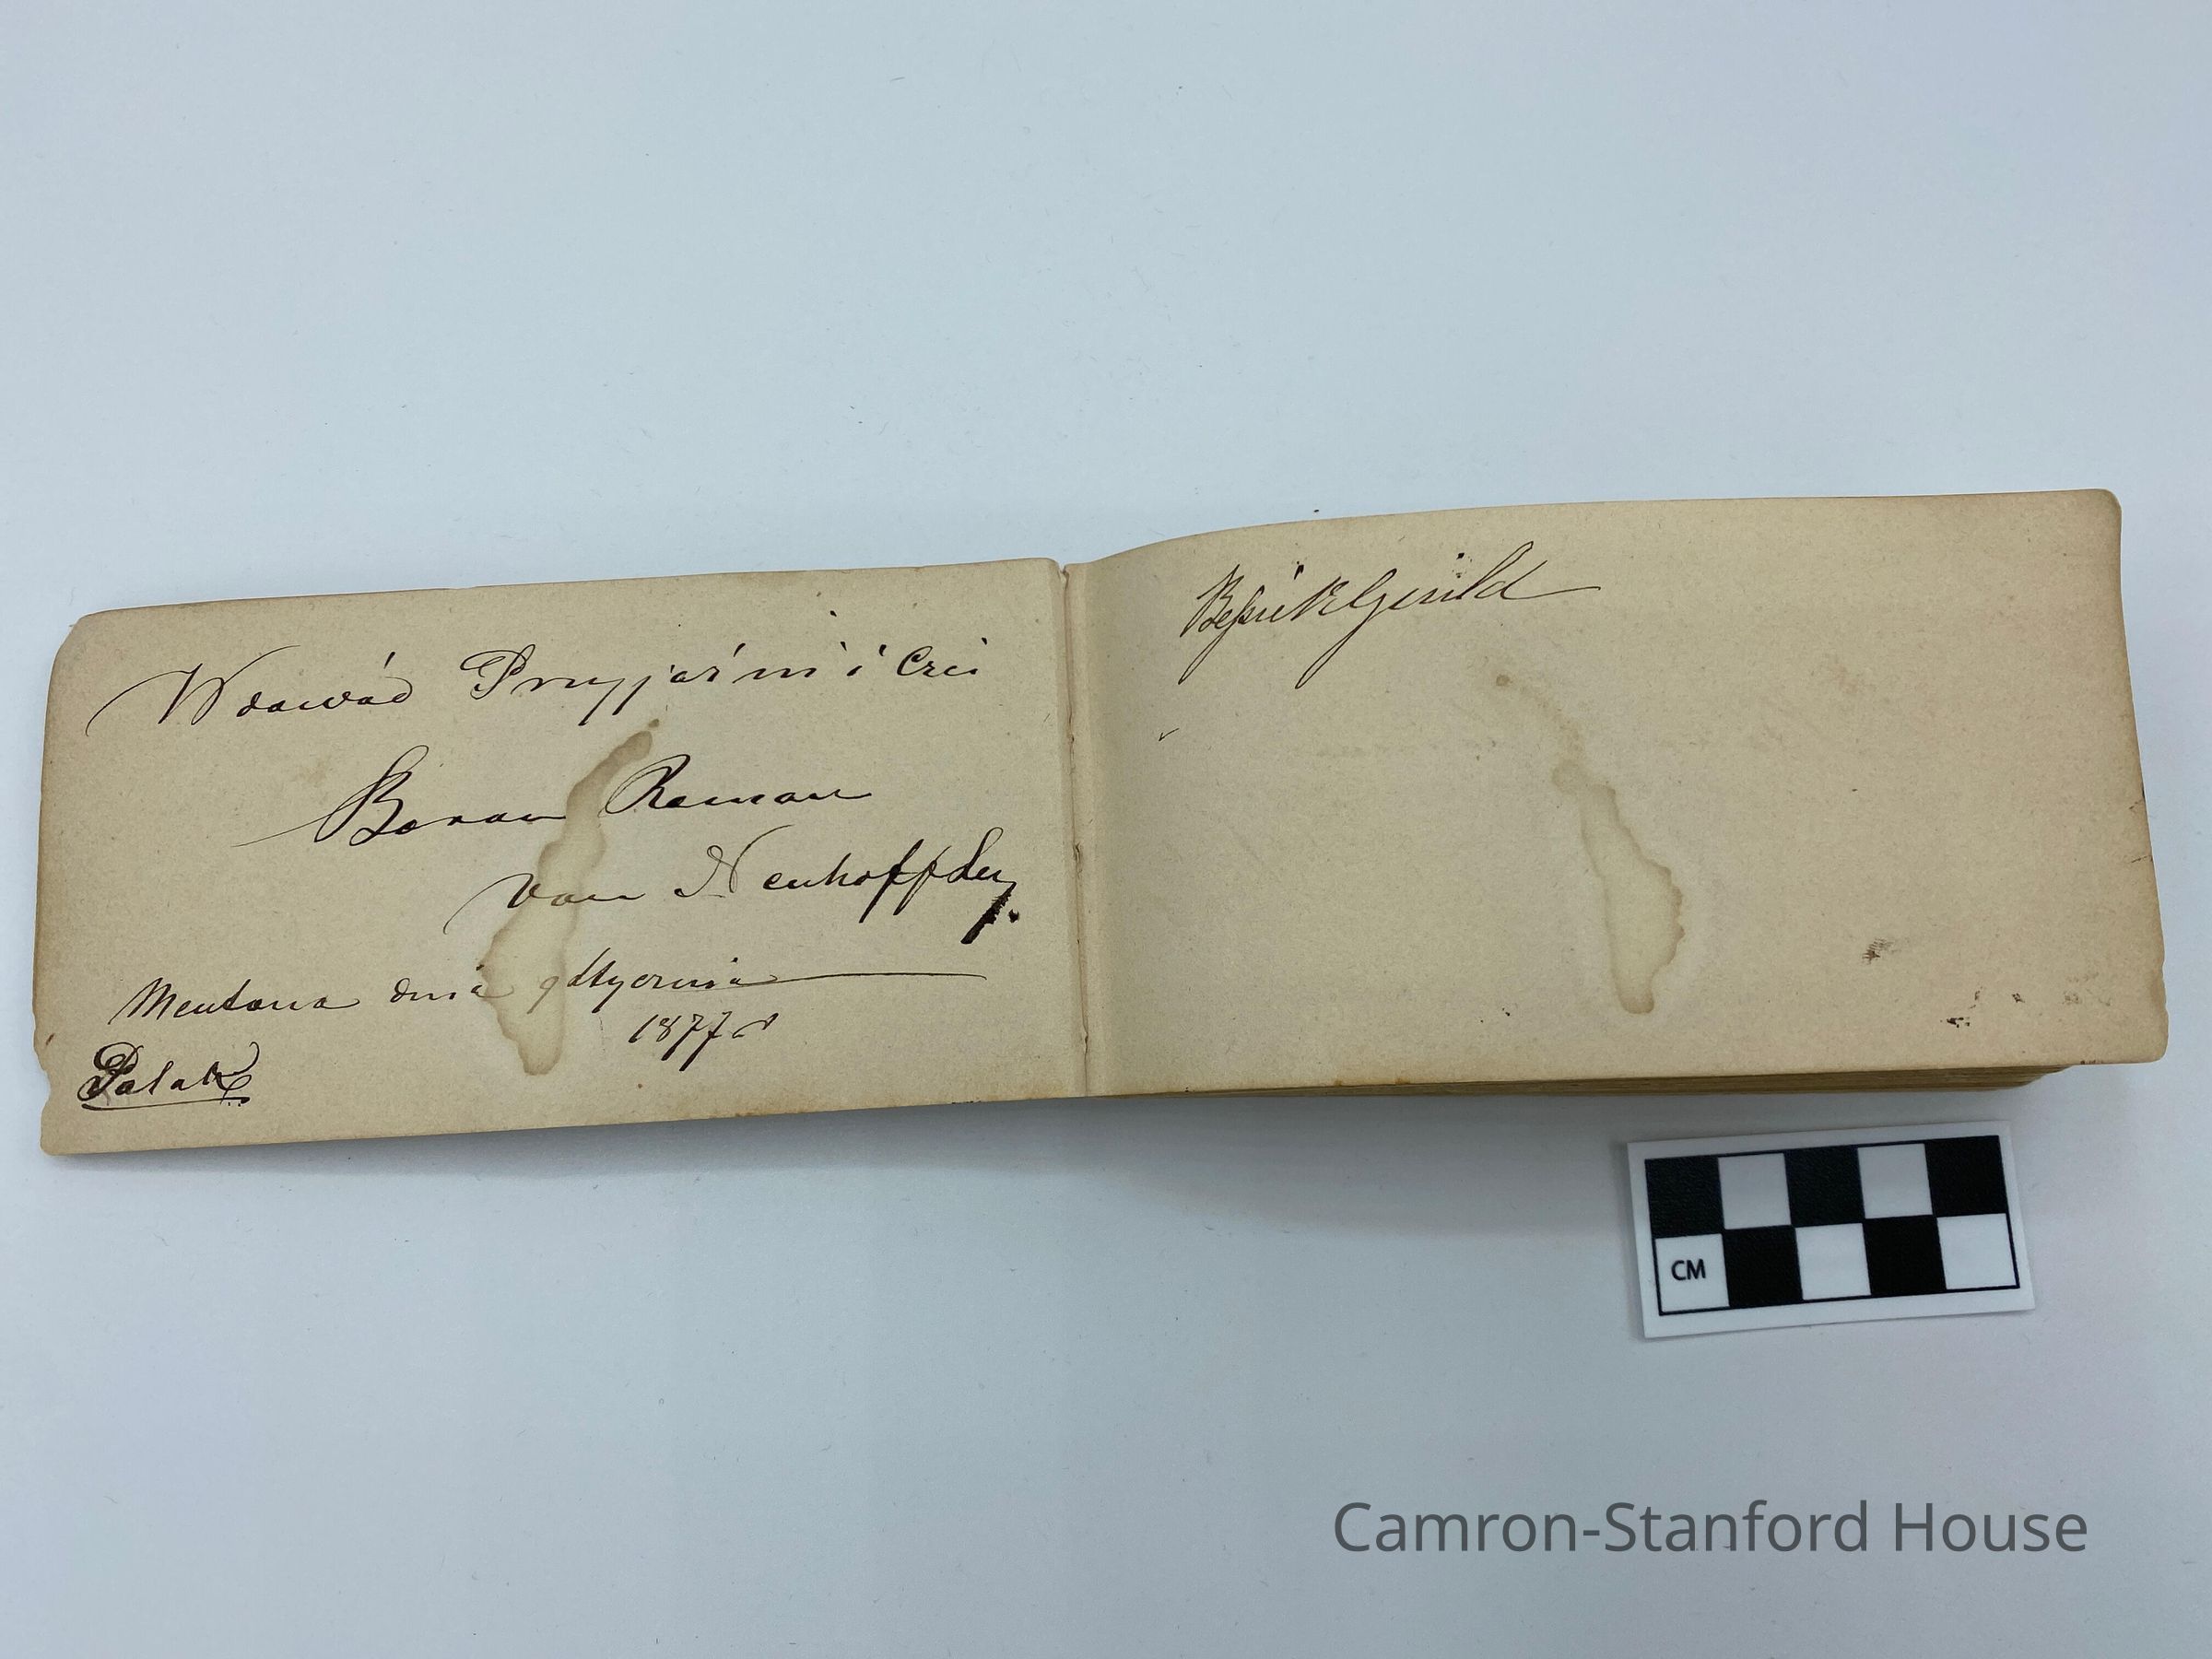 W dowód Przyjaźni i Czci
Baran Roman
von Neuhoff Ley.
Mentona dnia 9 Stycznia
1877 r
Polak
CM
Camron-Stanford House